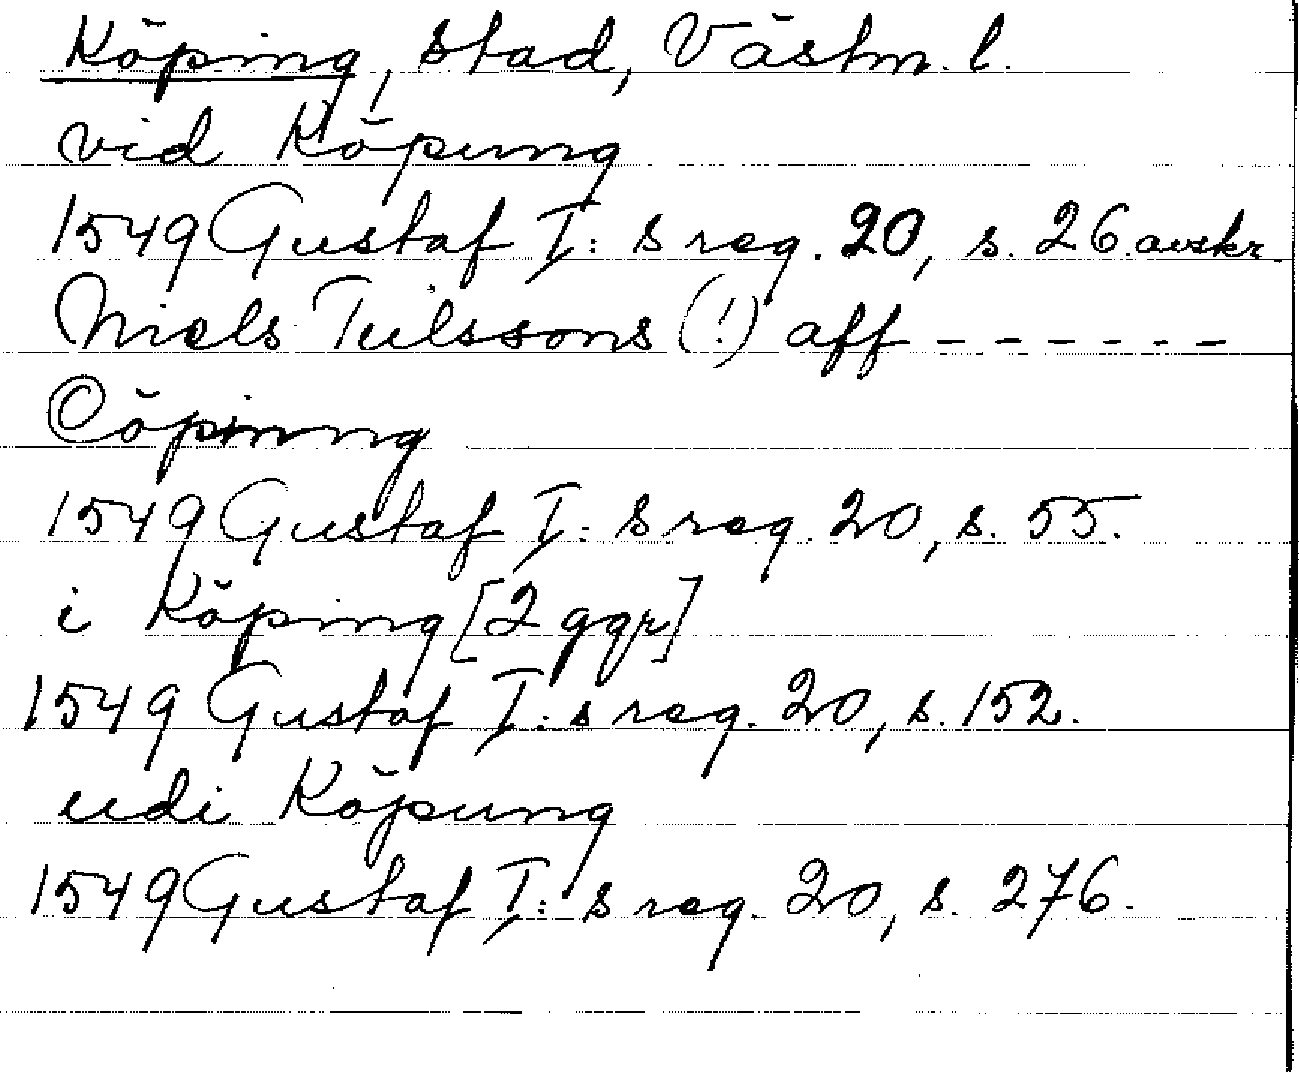 Köping, stad, Västm. l.
vid Köpung
1549 Gustaf I: s reg. 20, s. 26. avskr.
Niels Teilssons (!) aff - - - - - -
Cöpinng
1549 Gustaf I: s reg. 20, s. 55.
i Köping [2 ggr]
1549 Gustaf I: s reg. 20, s. 152.
udi Köpung
1549 Gustaf I: s reg. 20, s. 276.